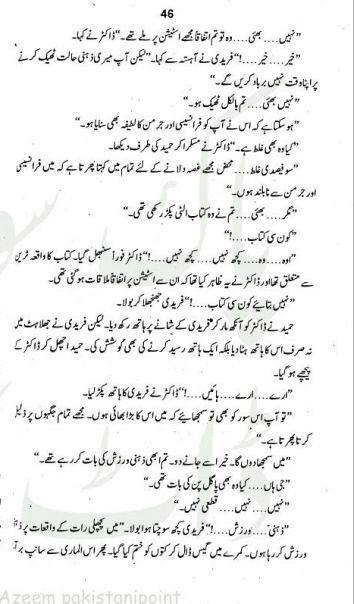 46
"نہیں.... بھئی.... وہ تو تم اتفاقاً مجھے اسٹیشن پر ملے تھے۔" ڈاکٹر نے کہا۔
"خیر.... خیر....!" فریدی نے آہستہ سے کہا۔ "لیکن آپ میری ذہنی حالت ٹھیک کرنے
پر اپنا وقت نہیں برباد کریں گے۔"
"نہیں بھئی.... تم بالکل ٹھیک ہو۔"
"ہو سکتا ہے کہ اس نے آپ کو فرانسیسی اور جرمن کا لطیفہ بھی سنایا ہو۔"
"کیا وہ بھی غلط ہے۔" ڈاکٹر نے مسکرا کر حمید کی طرف دیکھا۔
"سو فیصدی غلط.... محض مجھے غصہ دلانے کے لئے تمام میں کہتا پھرتا ہے کہ میں فرانسیسی
اور جرمن سے نابلند ہوں۔"
"مگر.... بھئی.... تم نے وہ کتاب الٹی پکڑ رکھی تھی۔"
"کون سی کتاب....!"
"اوہ.... وہ.... کچھ نہیں.... کچھ نہیں....!" ڈاکٹر فوراً سنبھل گیا۔ کتاب کا واقعہ ٹرین
سے متعلق تھا اور ڈاکٹر نے یہ ظاہر کیا تھا کہ ان سے اسٹیشن پر اتفاقاً ملاقات ہو گئی تھی۔
"نہیں بتایئے کون سی کتاب....!" فریدی جھنجھلا کر بولا۔
حمید نے ڈاکٹر کو آنکھ مار کر فریدی کے شانے پر ہاتھ رکھ دیا۔ لیکن فریدی نے جھلاہٹ میں
نہ صرف اس کا ہاتھ ہٹا دیا بلکہ ایک ہاتھ رسید کرنے کی بھی کوشش کی۔ حمید اچھل کر ڈاکٹر کے
پیچھے ہو گیا۔
"ارے.... ارے.... ہائیں....!" ڈاکٹر نے فریدی کا ہاتھ پکڑ لیا۔
"تو آپ اس سور کو بھی تو سمجھایئے کہ میں اس کا بڑا بھائی ہوں۔ مجھے تمام جگہوں پر ذلیل
کرتا پھرتا ہے۔"
"میں سمجھا دوں گا۔ خیر اسے جانے دو۔ تم ابھی ذہنی ورزش کی بات کر رہے تھے۔"
"جی ہاں.... کیا وہ بھی پاگل پن کی بات تھی۔"
"نہیں.... نہیں.... قطعی نہیں۔"
"ذہنی.... ورزش....!" فریدی کچھ سوچتا ہوا بولا۔ "میں پچھلی رات کے واقعات پر ذہنی
ورزش کر رہا ہوں۔ کمرے میں گیس ڈال کر کتوں کو ختم کیا گیا۔ پھر اس الماری سے سانپ برآ
Azeem pakistanipoint